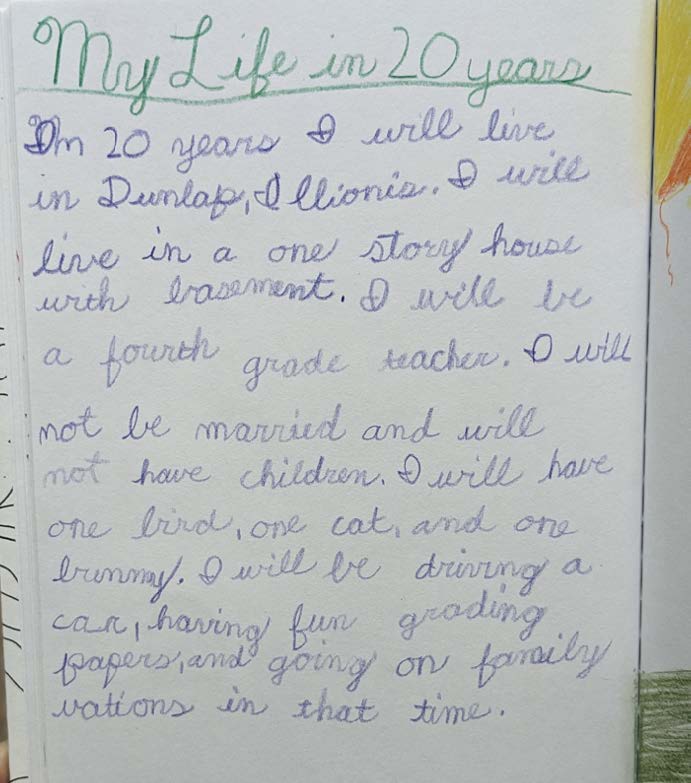 My Life in 20 years
In 20 years I will live
in Dunlap, Illionis. I will
live in a one story house
with basement. I will be
a fourth grade teacher. I will
not be married and will
not have children. I will have
one bird, one cat, and one
bunny. I will be driving a
car, having fun grading
papers, and going on family
vations in that time.